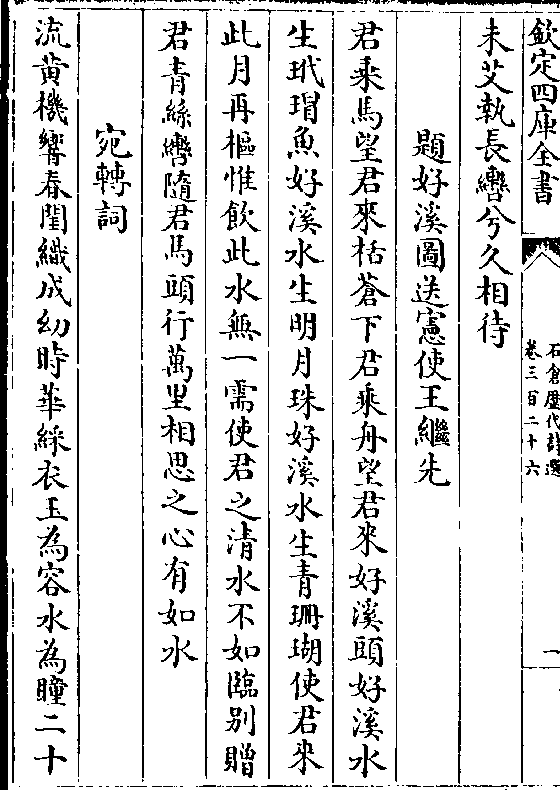 欽定四庫全書
石倉歷代詩選
卷三百二十六
一
未艾執長轡兮久相待
題好溪圖送憲使王繼先
君乘馬望君來栝蒼下君乘舟望君來好溪頭好溪水
生玳瑁魚好溪水生明月珠好溪水生青珊瑚使君來
此月再樞惟飲此水無一需使君之清水不如臨别贈
君青絲轡隨君馬頭行萬里相思之心有如水
宛轉詞
流黄機響春閨織成幼時華綵衣玉為容水為瞳二十